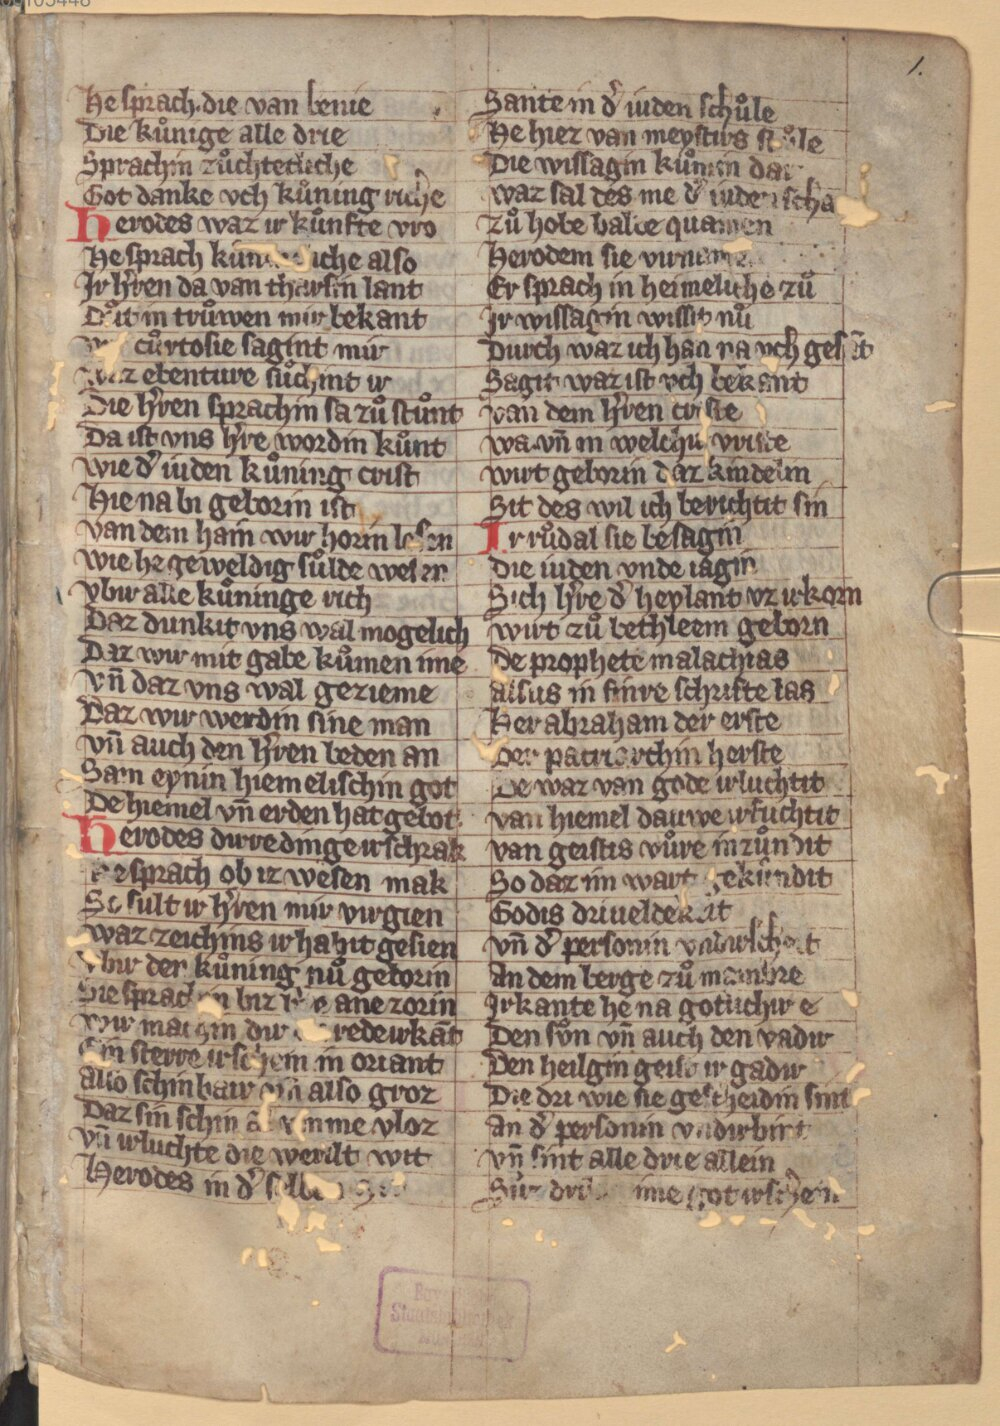 1.
He sprach · die van benie
Die kůnige alle drie
Sprachin zůchtecliche
Got danke vch kůning riche
Herodes waz ir kůnfte vro
He sprach also
Ir h̓ren da van tharsin lant
in trůwen mir bekant
cůrtosie sagint mir
ebenture sůchint ir
Die h̓ren sprachin sa zů stůnt
Da ist vns h̓re wordin kůnt
wie d̓ iuden kůning crist
Hie na bi geborin ist
van dem hain wir horin lesen
wie he geweldig sůlde wesen
vbir alle kůninge rich
Daz dunkit vns wal mogelich
Daz wir mit gabe kůmen ime
vn̄ daz vns wal gezieme
Daz wir werdin sine man
vn̄ auch den h̓ren beden an
Sam eynin hiemelischin got
De hiemel vn̄ erden hat gebot
Herodes dirre dinge irschrak
He sprach ob iz wesen mak
So sult ir h̓ren mir virgien
waz zeichins ir habit gesien
vbir der kůning nů geborin
Sie sprachin ane zorin
wir machin dir rede irkāt
Ein sterre irschein in oriant
also schinbair vn̄ also groz
Daz sin schin vloz
vn̄ irluchte die werilt wit
Herodes in d̓
Sante in d̓ iuden schůle
He hiez van meystirs stůle
Die wissagin kůmen dar
waz sal des me d̓ iuden schā
zů hobe balde quamen
Herodem sie virnamen
Er sprach in heimeliche zů
Ir wissagin wissit nů
Durch waz ich han na vch gesāt
Sagit waz ist vch bekant
van dem h̓ren criste
wa vn̄ in welchir vriste
wirt geborin daz kindelin
Sit des wil ich berichtit sin
Ir růdal sie besagin
Die iuden vnde iagin
Sich h̓re d̓ heylant vz irkorn
wirt zů bethleem geborn
De prophete malachias
alsus in sinre schrifte las
Her abraham der erste
Der patriarchin herste
De waz van gode irluchtit
van hiemel dauwe irfuchtit
van geistis vůre inzůndit
So daz im wart gekundit
Godis driueldekeit
vn̄ d̓ personin vndirscheit
An dem berge zů mambre
Irkante he na gotlichir e
Den sůn vn̄ auch den vadir
Den heilgin geist ir gadir
Die dri wie sie gescheidin sint
An d̓ personin vndirbint
vn̄ sint alle drie allein
Sůs ime got irschein